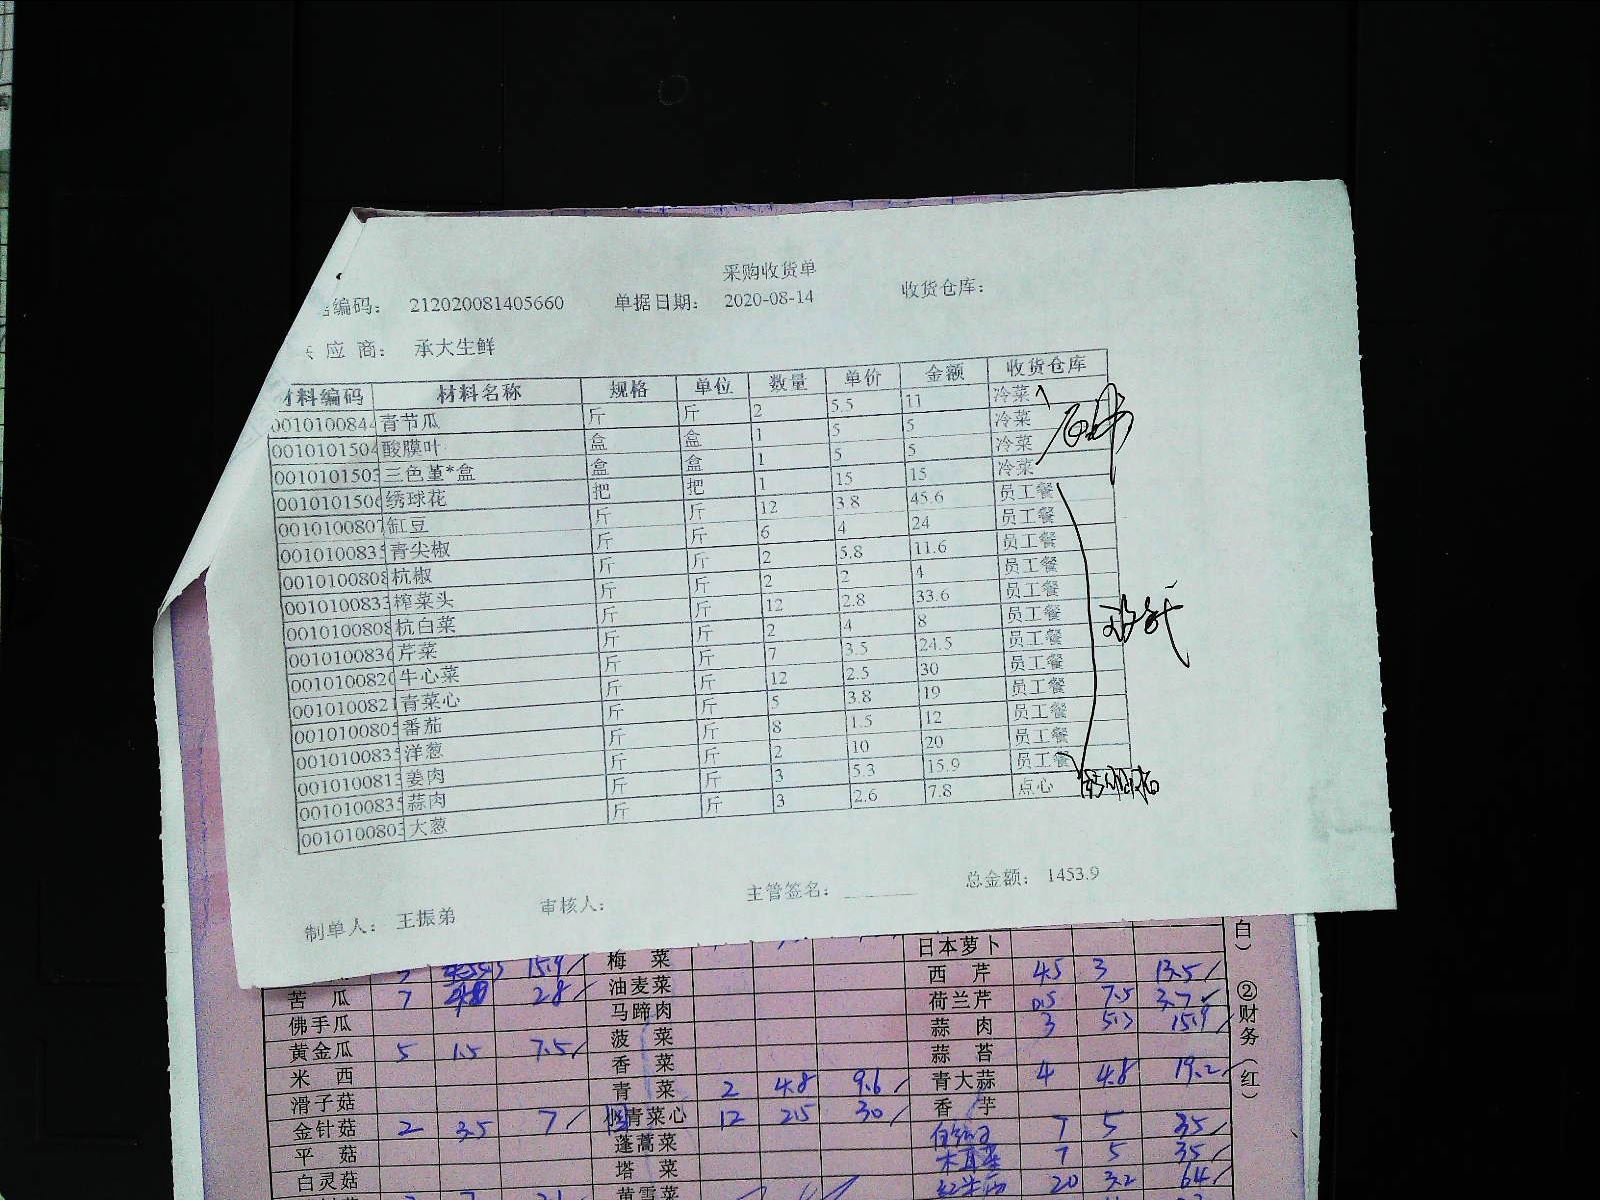 采购收货单
编码： 212020081405660 单据日期： 2020-08-14 收货仓库：
应 商： 承大生鲜
材料编码 材料名称 规格 单位 数量 单价 金额 收货仓库
0010100844 青节瓜 斤 斤 2 5.5 11 冷菜
0010101504 酸膜叶 盒 盒 1 5 5 冷菜
0010101503 三色堇*盒 盒 盒 1 5 5 冷菜
0010101506 绣球花 把 把 1 15 15 冷菜
0010100807 缸豆 斤 斤 12 3.8 45.6 员工餐
0010100835 青尖椒 斤 斤 6 4 24 员工餐
0010100808 杭椒 斤 斤 2 5.8 11.6 员工餐
0010100833 榨菜头 斤 斤 2 2 4 员工餐
0010100808 杭白菜 斤 斤 12 2.8 33.6 员工餐
0010100836 芹菜 斤 斤 2 4 8 员工餐
0010100820 牛心菜 斤 斤 7 3.5 24.5 员工餐
0010100821 青菜心 斤 斤 12 2.5 30 员工餐
0010100805 番茄 斤 斤 5 3.8 19 员工餐
0010100835 洋葱 斤 斤 8 1.5 12 员工餐
0010100813 姜肉 斤 斤 2 10 20 员工餐
0010100835 蒜肉 斤 斤 3 5.3 15.9 员工餐
0010100803 大葱 斤 斤 3 2.6 7.8 点心
制单人： 王振弟 审核人： 主管签名： 总金额： 1453.9
白）
②财务（红）
15.9 梅菜 日本萝卜
苦瓜 7 28 油麦菜 西芹 4.5 3 13.5
佛手瓜 马蹄肉 荷兰芹 0.5 7.5 3.7
黄金瓜 5 1.5 7.5 菠菜 蒜肉 3 5.3 15.9
米西 香菜 蒜苔
滑子菇 青菜 2 4.8 9.6 青大蒜 4 4.8 19.2
金针菇 2 3.5 7 青菜心 12 2.5 30 香芋
平菇 蓬蒿菜 7 5 35
白灵菇 塔菜 木耳菜 7 5 35
黄雪菜 20 3.2 64